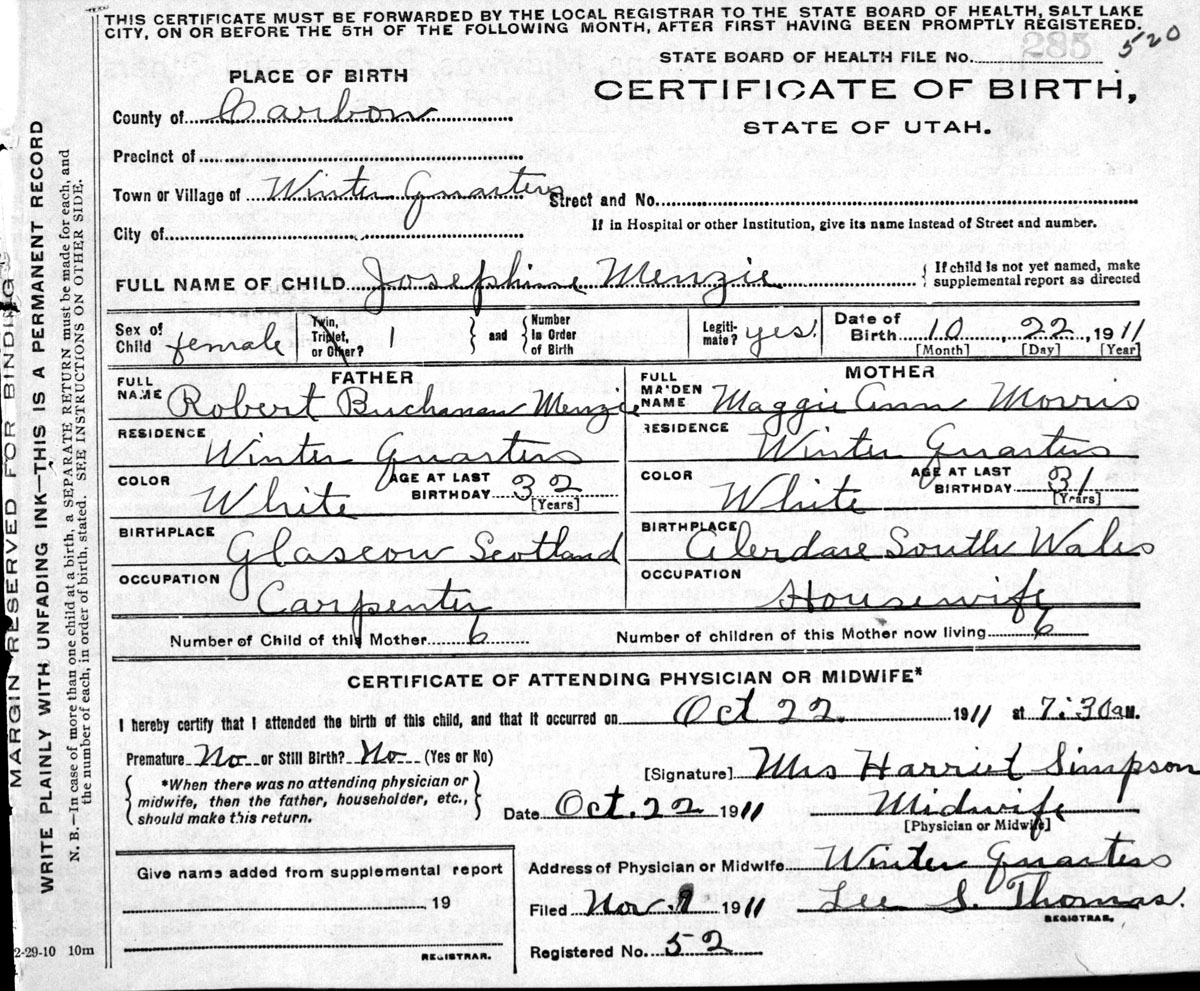 THIS CERTIFICATE MUST BE FORWARDED BY THE LOCAL REGISTRAR TO THE STATE BOARD OF HEALTH, SALT LAKE
CITY, ON OR BEFORE THE 5TH OF THE FOLLOWING MONTH, AFTER FIRST HAVING BEEN PROMPTLY REGISTERED.
285
520
STATE BOARD OF HEALTH FILE No.
PLACE OF BIRTH
CERTIFICATE OF BIRTH,
STATE OF UTAH.
County of Carbon
Precinct of
Town or Village of Winter Quarters Street and No.
City of
If in Hospital or other Institution, give its name instead of Street and number.
FULL NAME OF CHILD Josephine Menzie { If child is not yet named, make
supplemental report as directed
Sex of Child female
Twin, Triplet, or Other? 1 } and { Number In Order of Birth
Legiti-mate? yes!
Date of Birth 10, 22, 1911
[Month] [Day] [Year]
FATHER
FULL NAME Robert Buchanan Menzie
RESIDENCE Winter Quarters
COLOR White AGE AT LAST BIRTHDAY 32 [Years]
BIRTHPLACE Glascow Scotland
OCCUPATION Carpenter
MOTHER
FULL MAIDEN NAME Maggie Ann Morris
RESIDENCE Winter Quarters
COLOR White AGE AT LAST BIRTHDAY 31 [Years]
BIRTHPLACE Aberdare South Wales
OCCUPATION Housewife
Number of Child of this Mother 6 Number of children of this Mother now living 6
CERTIFICATE OF ATTENDING PHYSICIAN OR MIDWIFE*
I hereby certify that I attended the birth of this child, and that it occurred on Oct 22 1911 at 7:30 a M.
Premature No or Still Birth? No (Yes or No)
*When there was no attending physician or
midwife, then the father, householder, etc.,
should make this return.
[Signature] Mrs Harriet Simpson
Date Oct. 22 1911 Midwife
[Physician or Midwife]
Give name added from supplemental report
19
REGISTRAR.
Address of Physician or Midwife Winter Quarters
Filed Nov. 1911 Lee S. Thomas.
REGISTRAR.
Registered No. 52
2-29-10 10m
MARGIN RESERVED FOR BINDING
WRITE PLAINLY WITH UNFADING INK—THIS IS A PERMANENT RECORD
N. B.—In case of more than one child at a birth, a SEPARATE RETURN must be made for each, and
the number of each, in order of birth, stated. SEE INSTRUCTIONS ON OTHER SIDE.